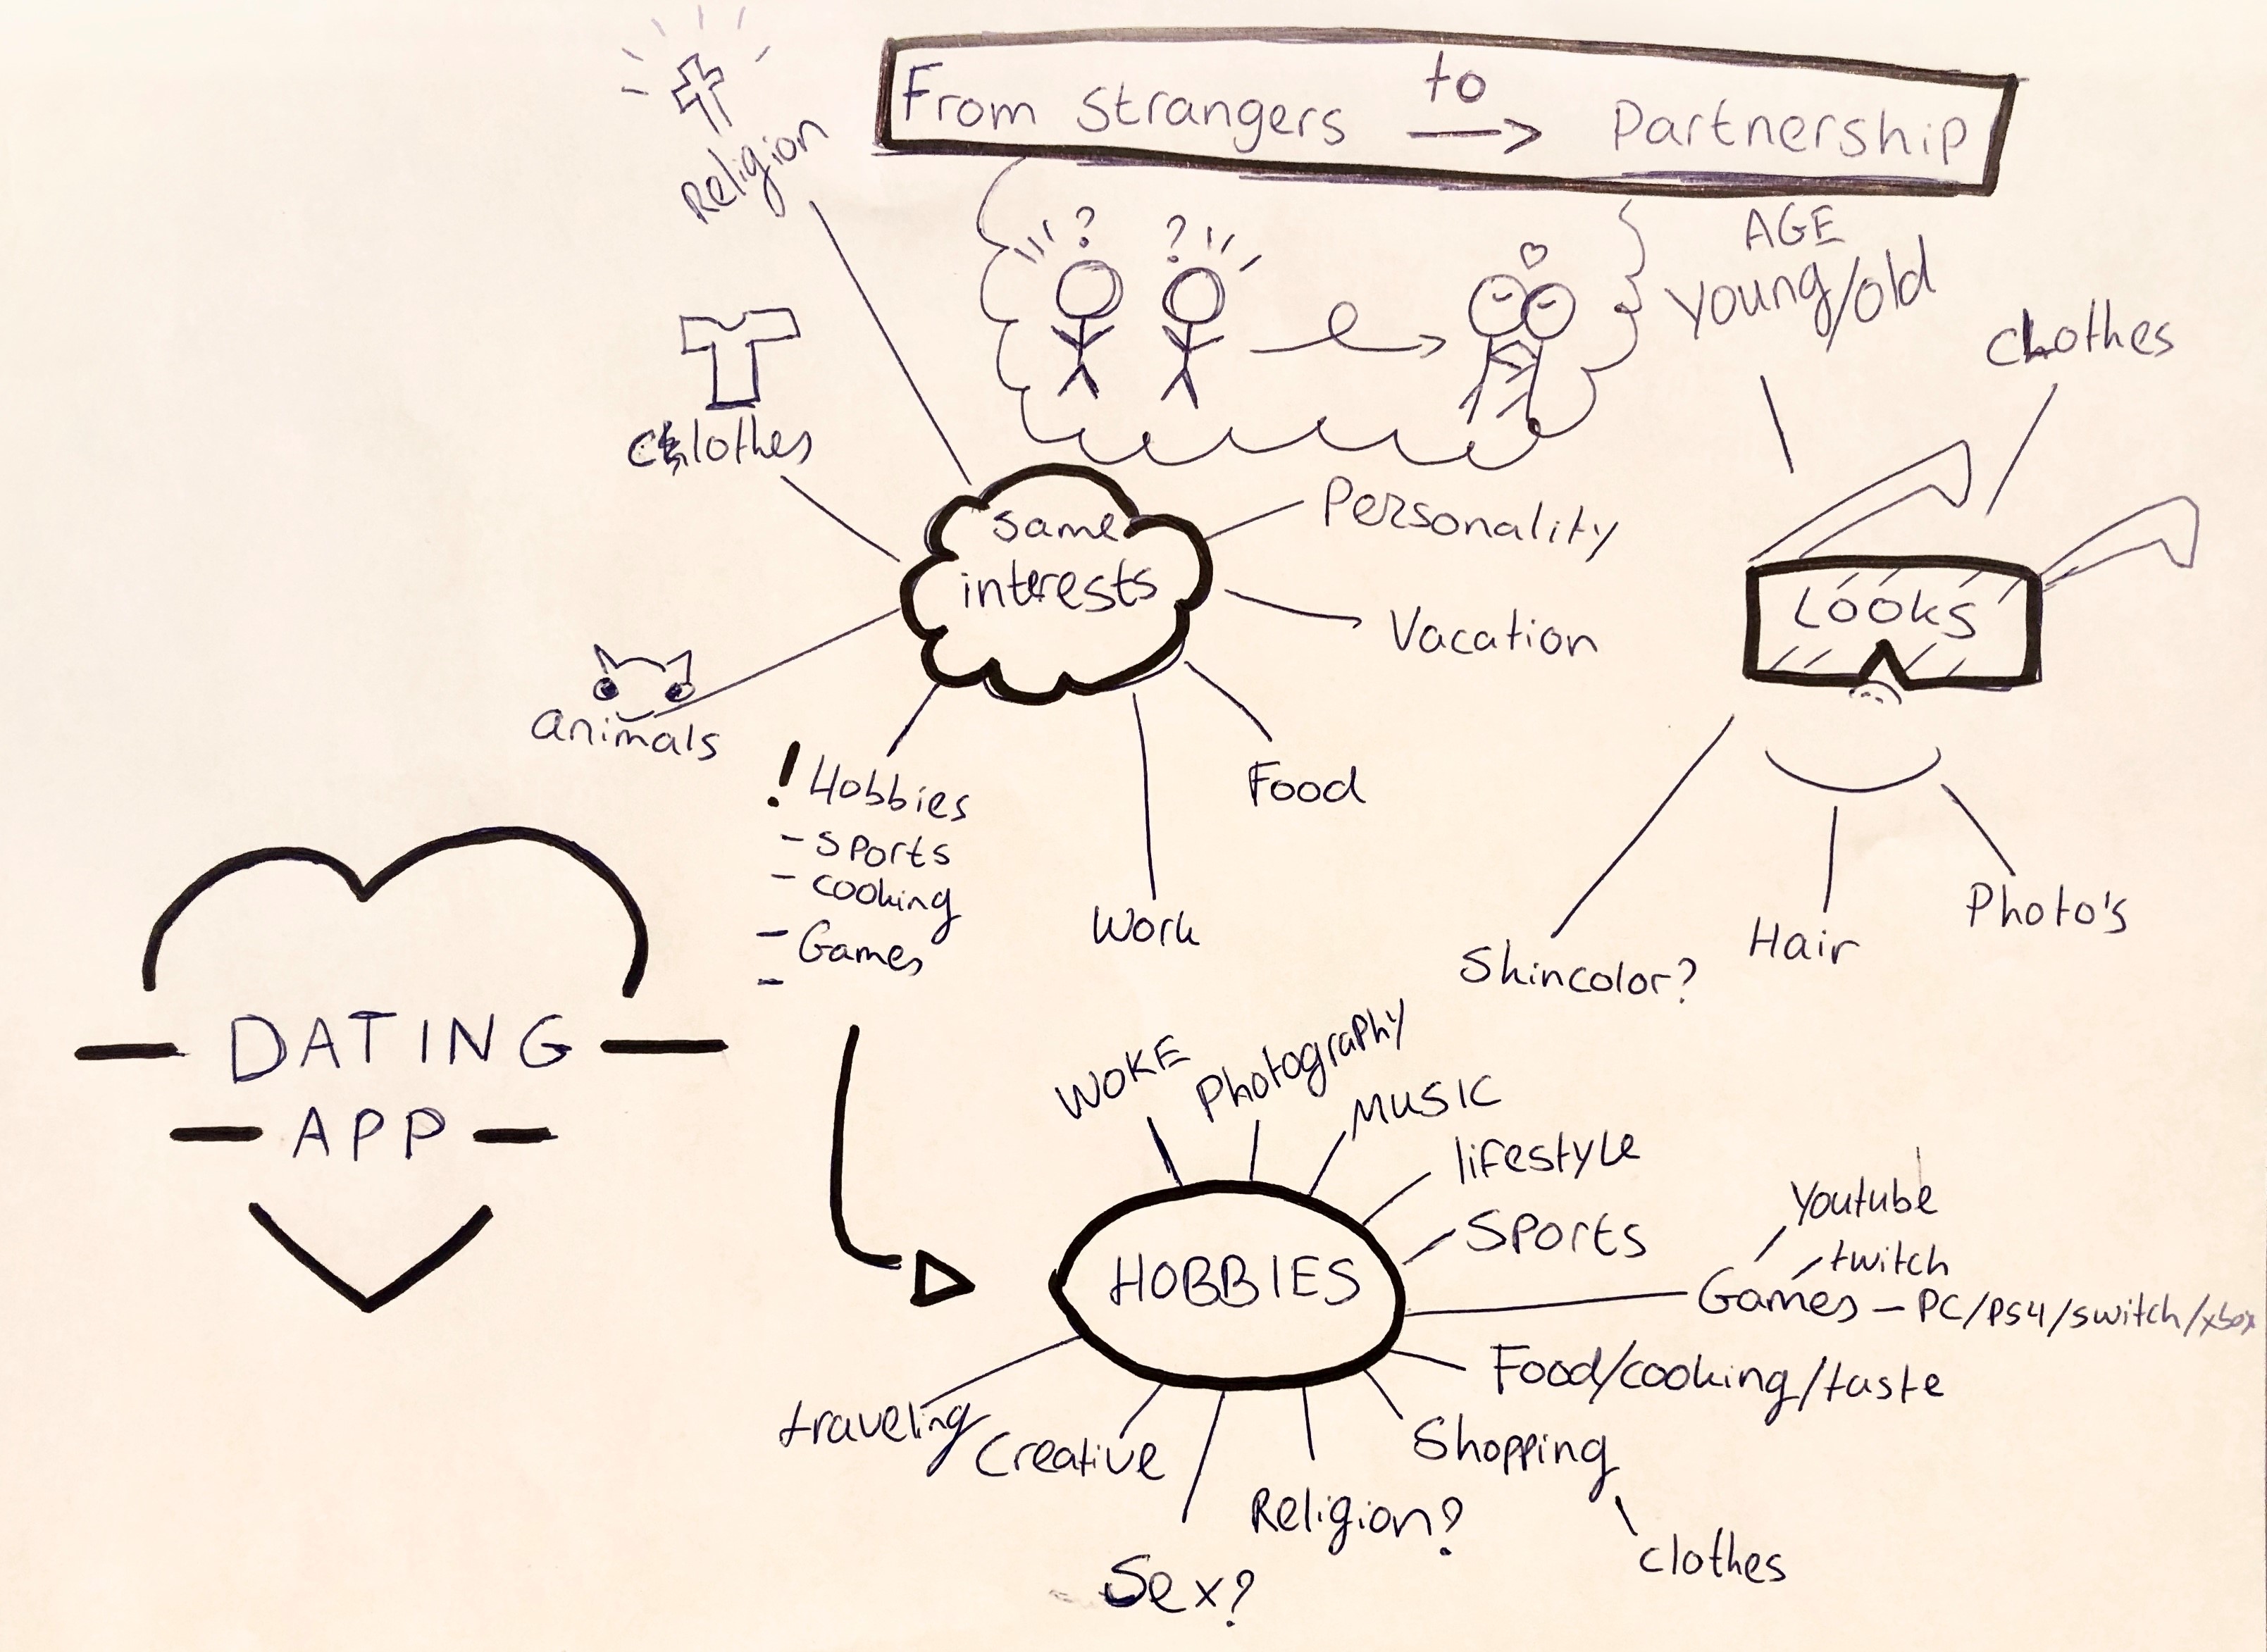 From strangers to → Partnership
Religion
? ?
AGE
young/old
clothes
clothes
same
interests
Personality
Vacation
Food
Work
animals
! Hobbies
- sports
- cooking
- Games
-
Looks
Skincolor?
Hair
Photo's
DATING
APP
HOBBIES
WOKE
Photography
MUSIC
lifestyle
Sports
Games - PC/PS4/switch/xbox
Youtube
twitch
Food/cooking/taste
Shopping
clothes
Religion?
Sex?
Creative
traveling